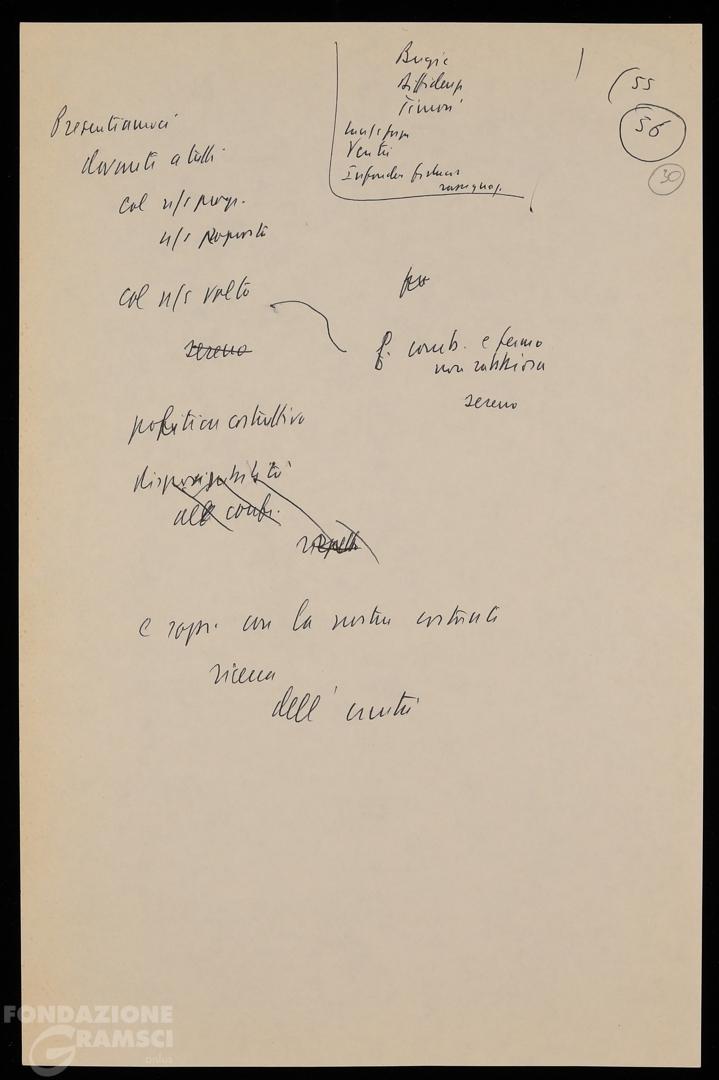 Bugie
diffidenz
Timori
55
56
30
Verità
Infonder fiducia
rassegnaz.
Presentiamoci
davanti a tutti
col n/s progr.
n/s proposte
col n/s volto
sereno
f. comb. e fermo
non rabbioso
sereno
politica costruttiva
disponibilità
al confr.
e sopr. con la nostra costante
ricerca
dell'unità
FONDAZIONE
GRAMSCI
onlus